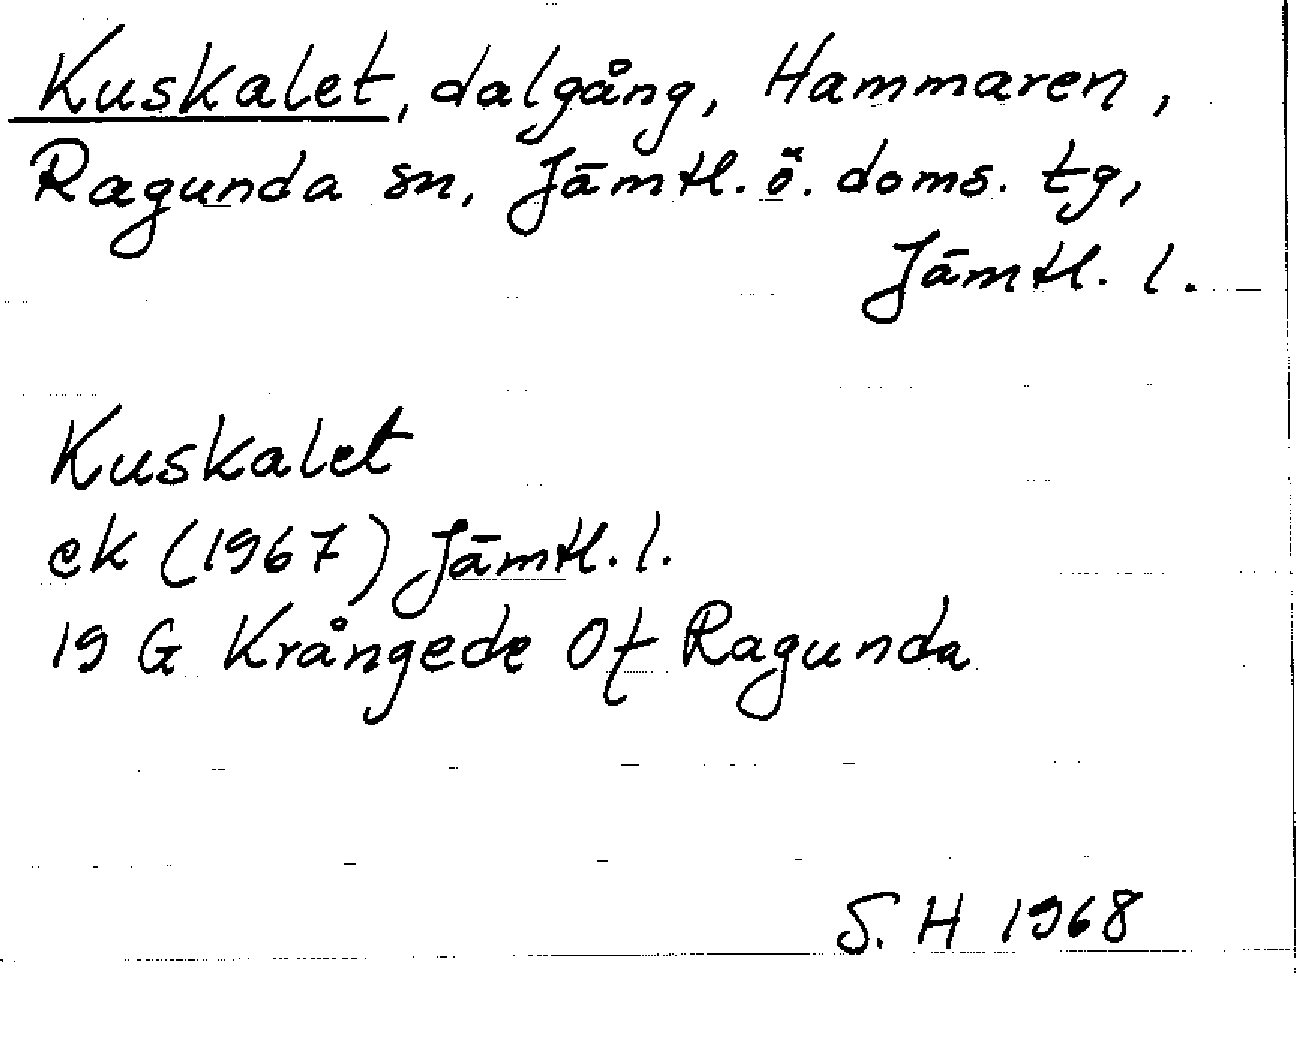 Kuskalet, dalgång, Hammaren,
Ragunda sn, Jämtl. ö. doms. tg,
Jämtl. l.
Kuskalet
ek (1967) Jämtl. l.
19 G Krångede Of Ragunda
S. H 1968